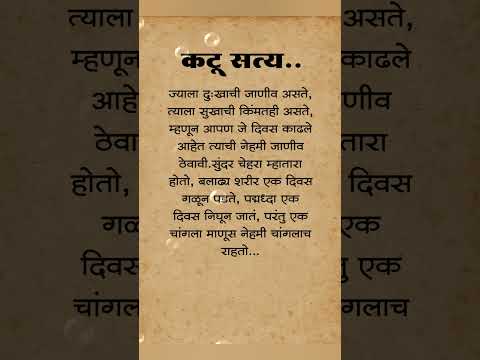 कटू सत्य..
ज्याला दुःखाची जाणीव असते,
त्याला सुखाची किंमतही असते,
म्हणून आपण जे दिवस काढले
आहेत त्याची नेहमी जाणीव
ठेवावी.सुंदर चेहरा म्हातारा
होतो, बलाढ्य शरीर एक दिवस
गळून पडते, पद्मध्दा एक
दिवस निघून जातं, परंतु एक
चांगला माणूस नेहमी चांगलाच
राहतो...